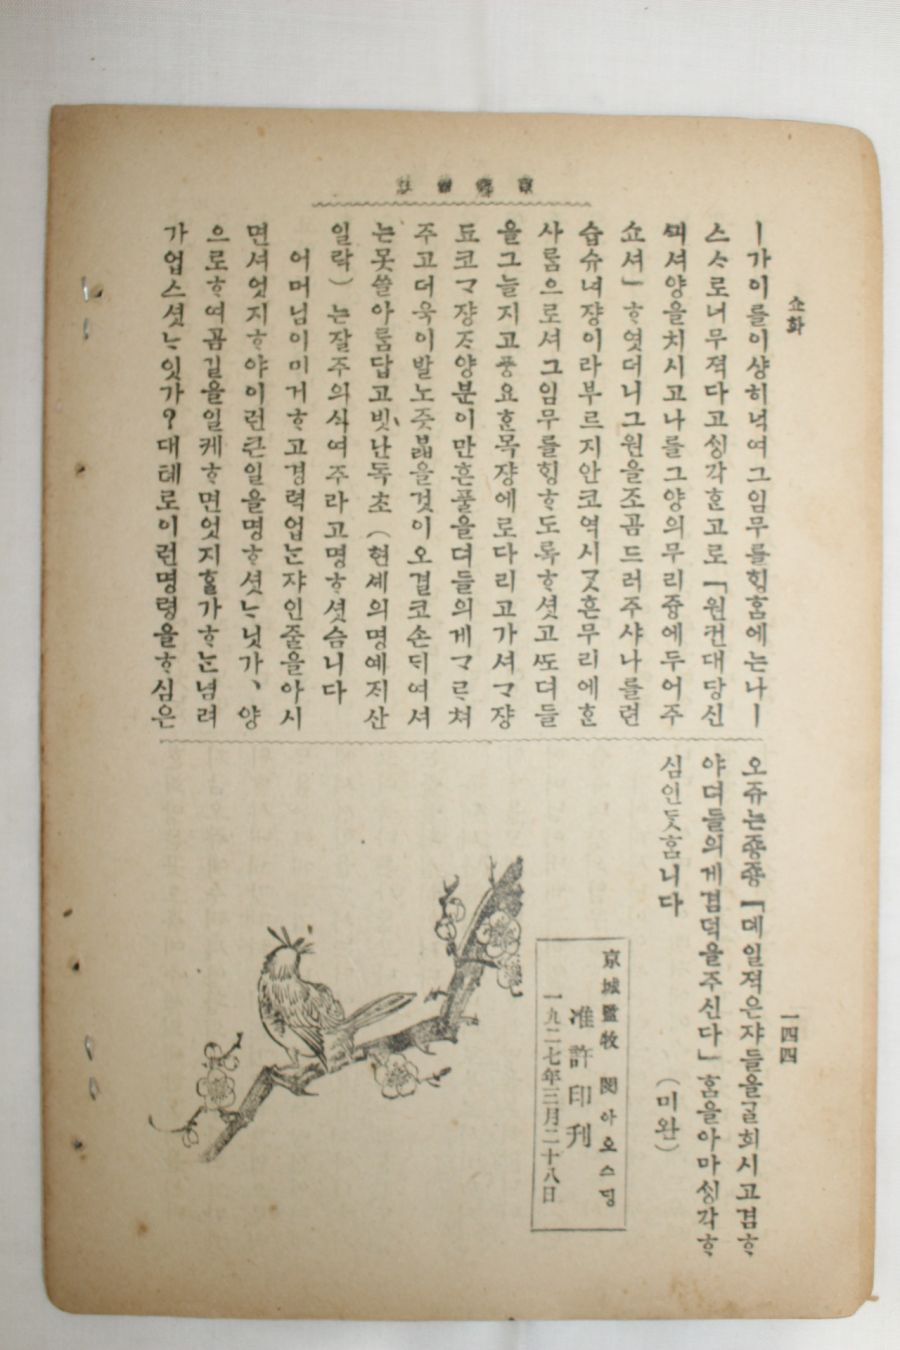 쇼화
一四四
ㅣ가이를이샹히녁여그임무를ᄒᆡᆼᄒᆞᆷ에는나ㅣ
스ᄉᆞ로너무젹다고ᄉᆡᆼ각ᄒᆞᆫ고로「원컨대당신
ᄭᅴ셔양을치시고나를그양의무리즁에두어주
쇼셔」ᄒᆞ엿더니그원을조곰드러주샤나를련
습슈녀쟝이라부르지안코역시ᄯᅩᄒᆞᆫ무리에ᄒᆞᆫ
사ᄅᆞᆷ으로셔그임무를ᄒᆡᆼᄒᆞ도록ᄒᆞ셧고ᄯᅩ뎌들
을그늘지고풍요ᄒᆞᆫ목쟝에로다리고가셔ᄀᆞ쟝
됴코ᄀᆞ쟝ᄌᆞ양분이만흔풀을뎌들의게ᄀᆞᄅᆞ쳐
주고더욱이발노즛ᄇᆞᆲ을것이오결코손ᄃᆡ여셔
는못쓸아ᄅᆞᆷ답고빗난독초(현셰의명예지산
일락)는잘주의식여주라고명ᄒᆞ셧슴니다
어머님이미거ᄒᆞ고경력업ᄂᆞᆫ쟈인줄을아시
면셔엇지ᄒᆞ야이런큰일을명ᄒᆞ셧ᄂᆞ닛가、양
으로ᄒᆞ여곰길을일케ᄒᆞ면엇지ᄒᆞᆯ가ᄒᆞᄂᆞᆫ념려
가업스셧ᄂᆞ잇가?대톄로이런명령을ᄒᆞ심은
오쥬는죵죵「뎨일젹은쟈들을ᄀᆞᆯ희시고겸ᄒᆞ
야뎌들의게겸덕을주신다」ᄒᆞᆷ을아마ᄉᆡᆼ각ᄒᆞ
심인듯ᄒᆞᆷ니다
(미완)
京城監牧 閔아오스딩
准許印刊
一九二七年三月二十八日